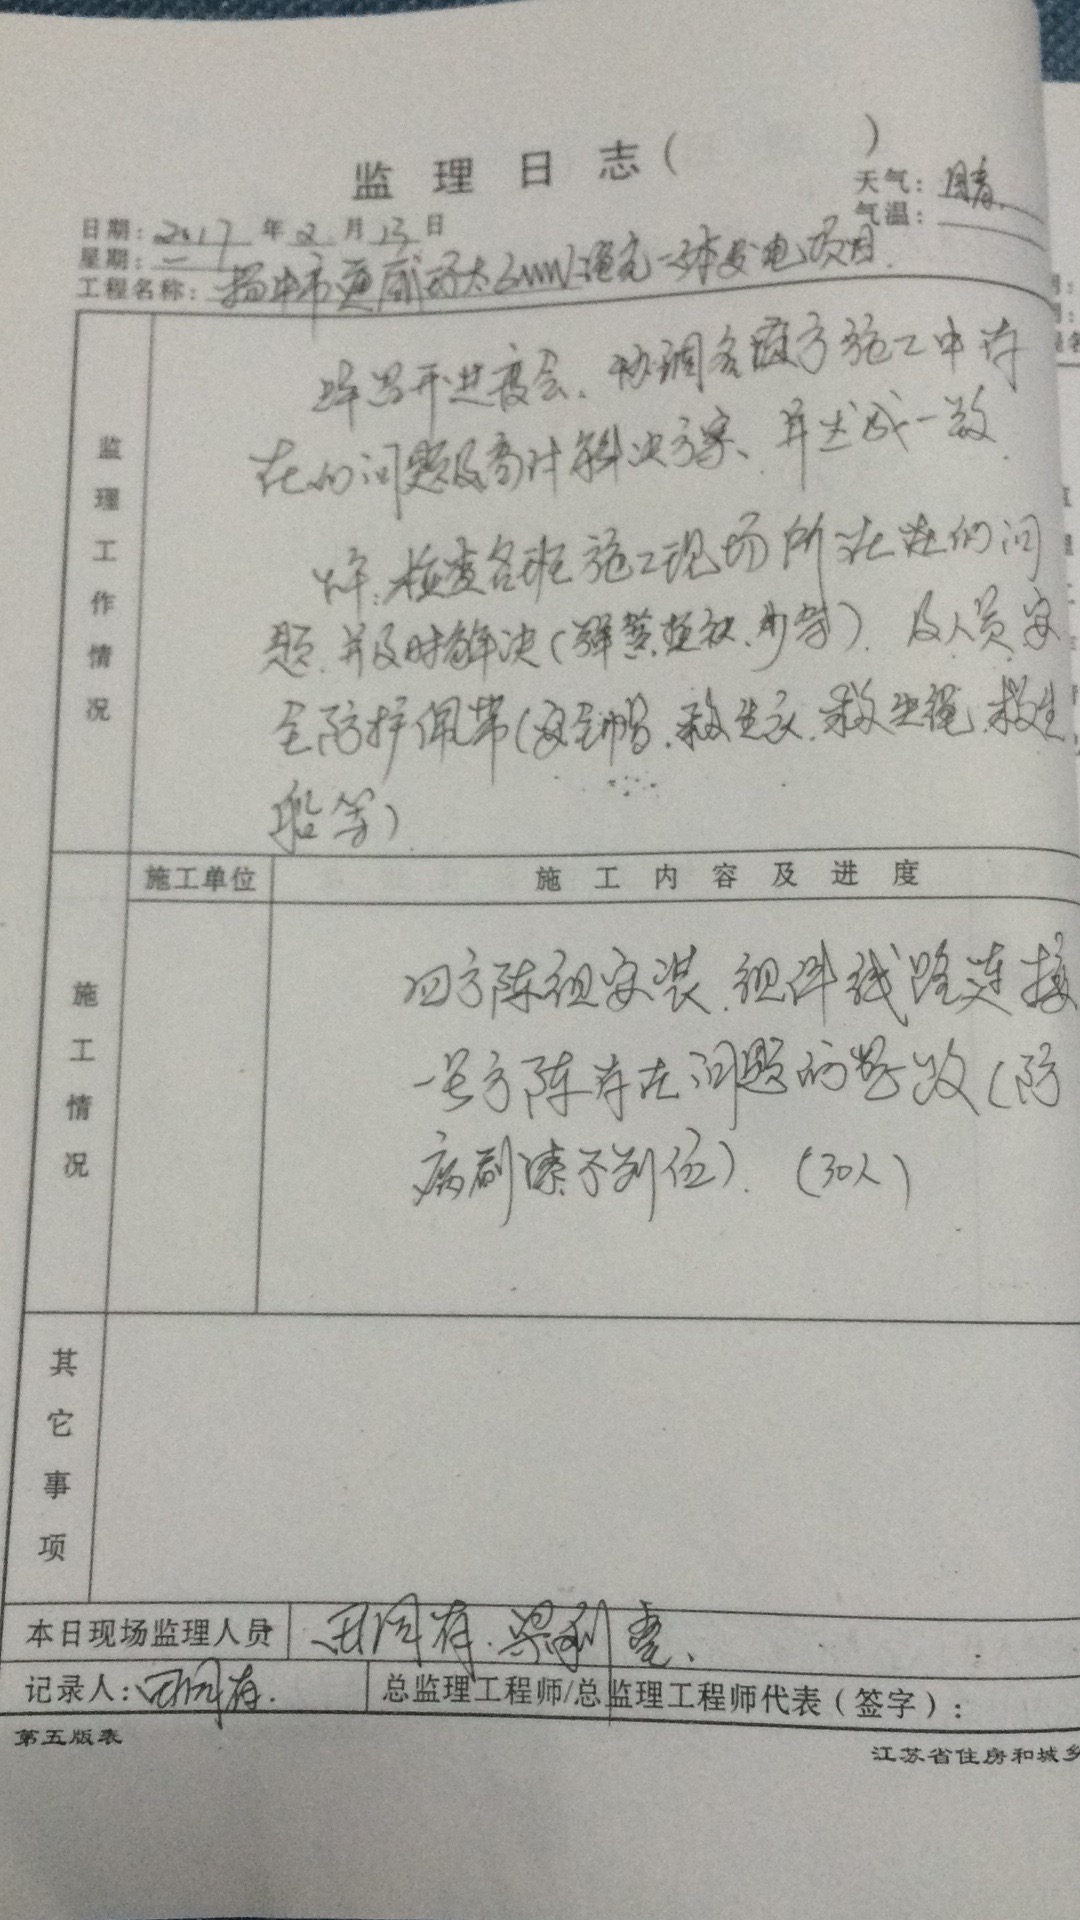 监理日志（ ）
天气：晴
日期：2017年2月13日
气温：
星期：一
工程名称：扬中市通威 渔光一体发电项目
监理工作情况
上午召开进度会、协调各 方施工中存
在的问题及商讨解决方案、并达成一致
下午：检查各班施工现场所存在的问
题、并及时解决 及人员安
全防护佩带（安全帽、救生衣、救生绳、救生
船等）
施工单位
施工内容及进度
施工情况
四方陈组安装、组件线路连接
一号方陈存在问题的整改（防
腐刷漆不到位）（30人）
其它事项
本日现场监理人员
记录人：
总监理工程师/总监理工程师代表（签字）：
第五版表
江苏省住房和城乡